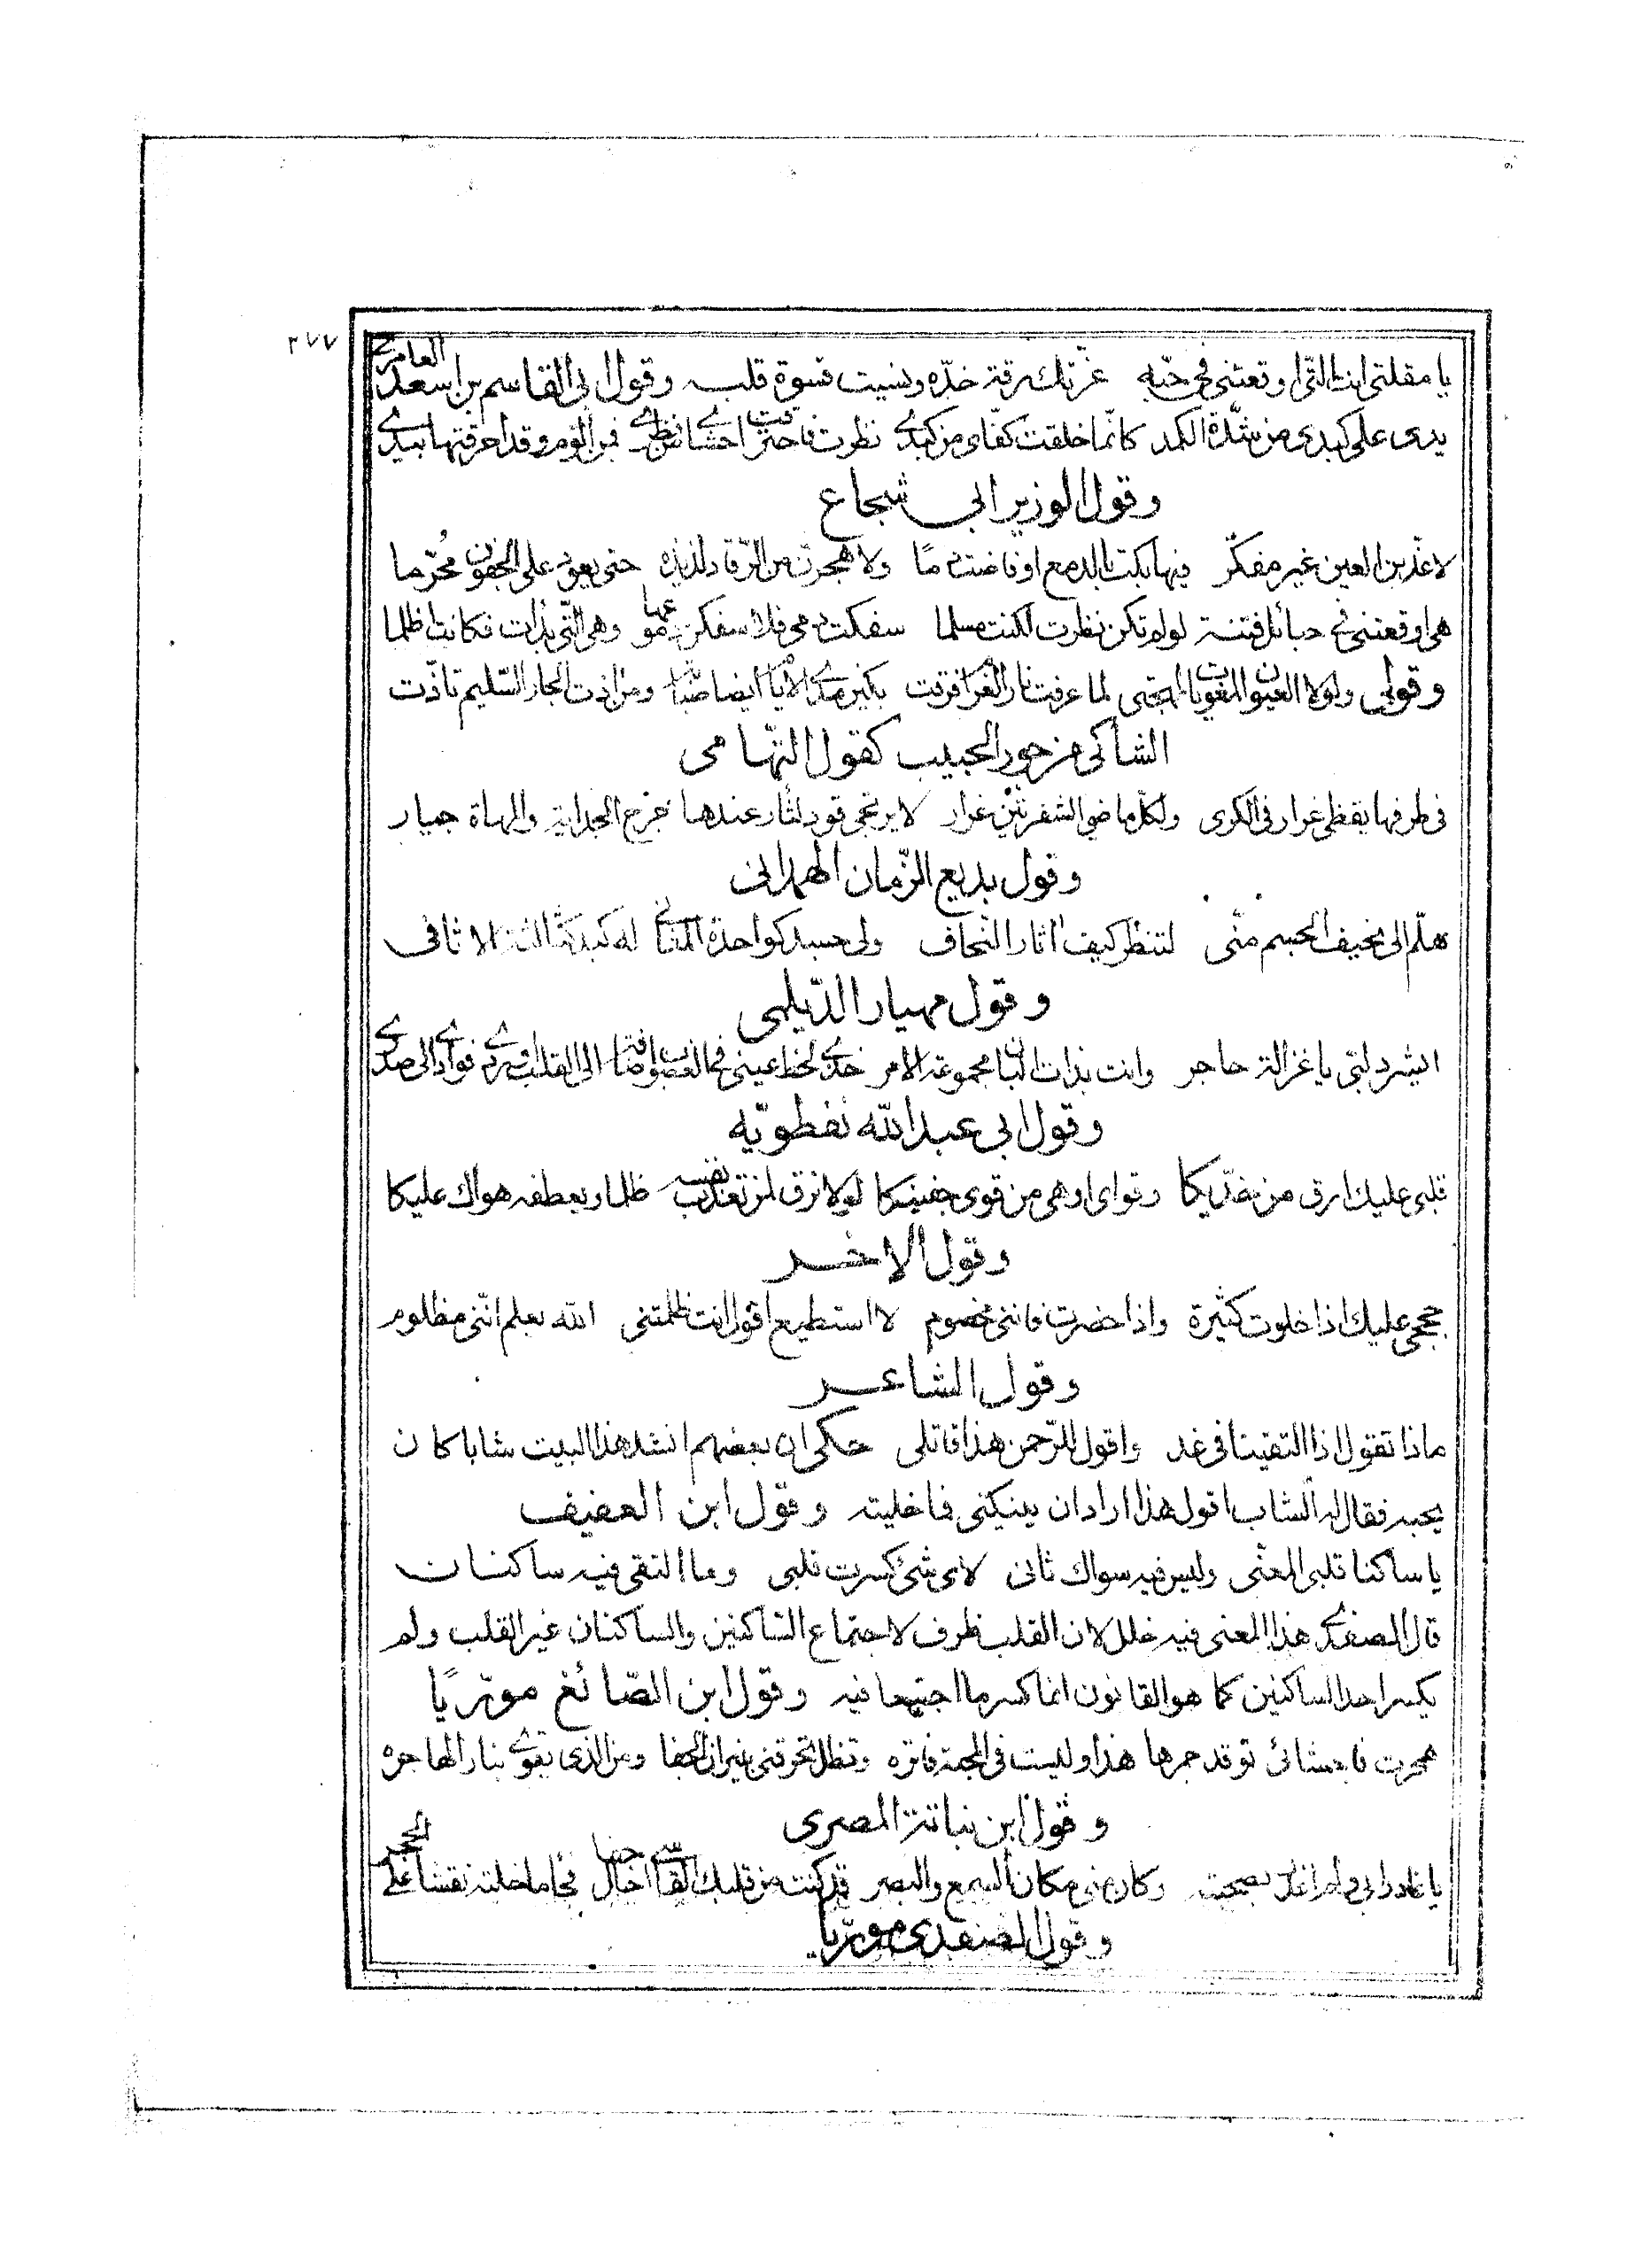 ٢٧٧
يا مقلتي انت التي اوقعتني في حبه غرتك رقة خده ونسيت قسوة قلبه وقول ابي القاسم بن اسعد العامري
يدي على كبدي من شدة الكمد كانما خلقت كفاي من كبدي نظرت فاحترقت احشاي من نظري فمن الوم وقد احرقتها بيدي
وقول الوزير ابي شجاع
لاعذبن العين غير مفكر فيها بكت بالدمع او فاضت دما ولاهجرن من الرقاد لذيذه حتى يعود على الجفون محرما
هي اوقعتني في حبائل فتنة لو لم تكن نظرت لكنت مسلما سفكت دمي فلاسفكن دموعها وهي التي بدات فكانت اظلما
وقولي ولولا العيون المغويات لمهجتي لما عرفت نار الغرام فرقت ومن اذت الجار السليم تاذت
الشاكي من جور الحبيب كقول التهامي
في طرفها يقظى غرار في الكرى ولكل ماضي الشفرتين غرار لا يرتجى قود لثار عندها جرح الجداية والمهاة جبار
وقول بديع الزمان الهمداني
هلم الى نحيف الجسم مني لتنظر كيف اثار النحاف ولي جسد كواحدة المثاني له كبد كثالثة الاثافي
وقول مهيار الديلمي
ايشرد لبي يا غزالة حاجر وانت بذات البان مجموعة الامر خذي لحظ عيني في الغصوب اضافة الى القلب او ردي فوادي الى صدري
وقول ابي عبد الله نفطويه
قلبي عليك ارق من خديكا وقواي اوهى من قوى جفنيكا لم لا ترق لمن تعذب نفسه ظلما ويعطفه هواك عليكا
وقول الاخر
حججي عليك اذا خلوت كثيرة واذا حضرت فانني مخصوم لا استطيع اقول انت ظلمتني الله يعلم انني مظلوم
وقول الشاعر
ماذا تقول اذا التقينا في غد واقول للرحمن هذا قاتلي حكي ان بعضهم انشد هذا البيت شابا كان
يحبه فقال له الشاب اقول هذا اراد ان ينيكني فاخليته وقول ابن العفيف
يا ساكنا قلبي المعنى وليس فيه سواك ثاني لاي شئ كسرت قلبي وما التقى فيه ساكنان
قال الصفدي هذا المعنى فيه خلل لان القلب ظرف لاجتماع الساكنين والساكنان غير القلب ولم
يكسر احد الساكنين كما هو القانون انما كسر ما اجتمعا فيه وقول ابن الصائغ موريا
هجرت فاحشائي توقد جمرها هذا وليست في المحبة فاتره وتظل تحرقني بنيران الجفا ومن الذي يقوى بنار الهاجره
وقول ابن نباتة المصري
يا غادرا بي ولم اغدر بصحبته وكان مني مكان السمع والبصر قد كنت من قلبك القاسي اخال جفا فجاء ما خلته نقشا على الحجر
وقول الصفدي موريا